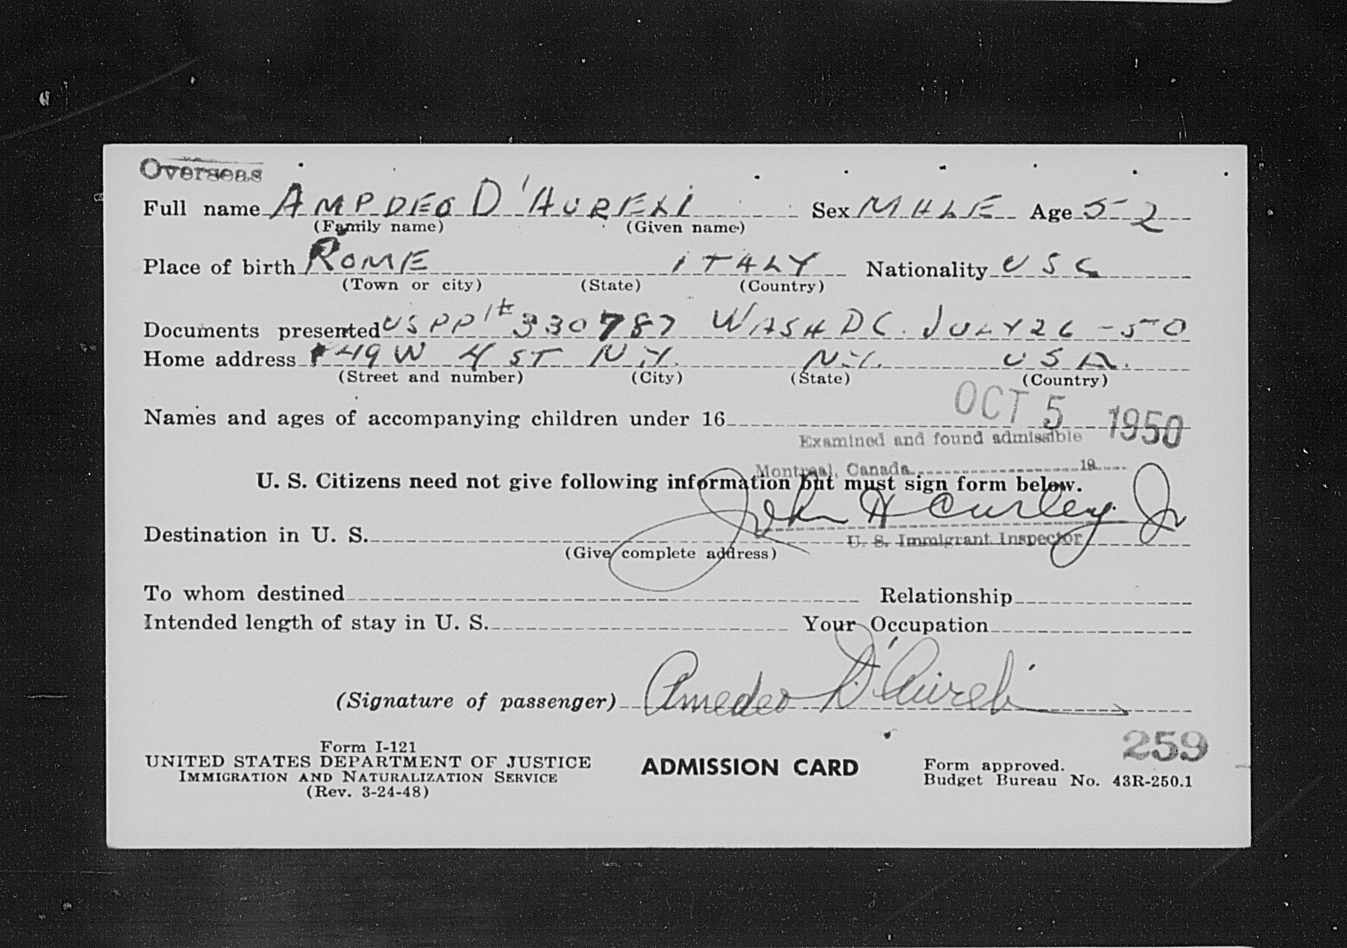 Overseas
Full name AMPDEO D'AURELI Sex MALE Age 52
(Family name) (Given name)
Place of birth ROME ITALY Nationality USC
(Town or city) (State) (Country)
Documents presented US PP # 330787 WASH DC. JULY 26-50
Home address 49 W 4 ST N.Y. N.Y. USA.
(Street and number) (City) (State) (Country)
OCT 5 1950
Names and ages of accompanying children under 16
Examined and found admissible
Montreal, Canada 19
U. S. Citizens need not give following information but must sign form below.
John H Curley Jr
Destination in U. S. U. S. Immigrant Inspector
(Give complete address)
To whom destined Relationship
Intended length of stay in U. S. Your Occupation
(Signature of passenger) Amedeo D'Aureli
259
Form I-121
UNITED STATES DEPARTMENT OF JUSTICE
IMMIGRATION AND NATURALIZATION SERVICE
(Rev. 3-24-48)
ADMISSION CARD
Form approved.
Budget Bureau No. 43R-250.1